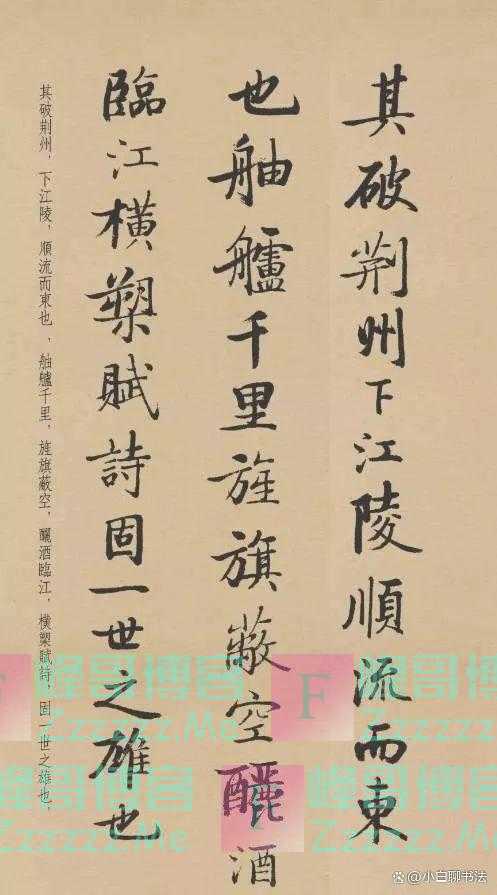 其破荆州下江陵順流而東
也舳艫千里旌旗蔽空釃酒
臨江橫槊賦詩固一世之雄也
其破荆州，下江陵，順流而東也，舳艫千里，旌旗蔽空，釃酒臨江，橫槊賦詩，固一世之雄也，
F
峰哥博客
Zzzzzz.Me
F
峰哥博客
Zzzzzz.Me
@小白聊书法